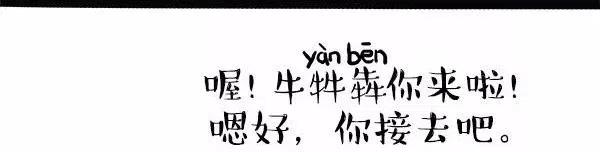 yàn bēn
喔！牛牪犇你来啦！
嗯好，你接去吧。